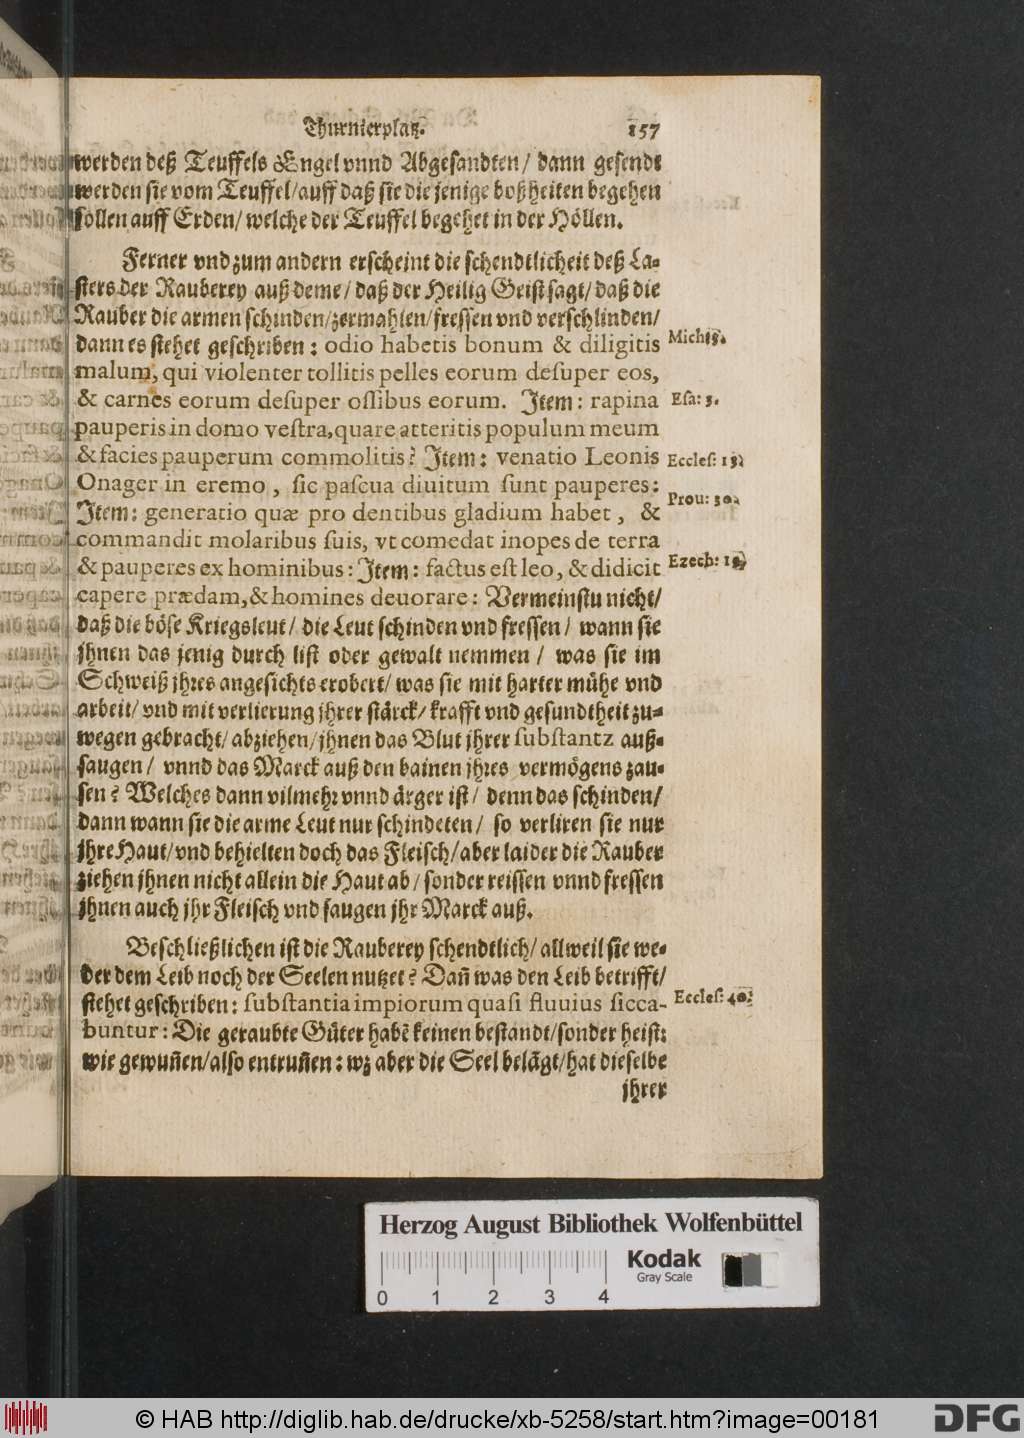 Thurnierplatz.
157
werden deß Teuffels Engel vnnd Abgesandten/ dann gesendt
werden sie vom Teuffel/auff daß sie die jenige boßheiten begehen
sollen auff Erden/ welche der Teuffel begehet in der Höllen.
Ferner vnd zum andern erscheint die schendtlicheit deß La-
sters der Rauberey auß deme/ daß der Heilig Geist sagt/ daß die
Rauber die armen schinden/zermahlen/fressen vnd verschlinden/
dann es stehet geschriben: odio habetis bonum & diligitis
malum, qui violenter tollitis pelles eorum desuper eos,
& carnes eorum desuper ossibus eorum. Item: rapina
pauperis in domo vestra, quare atteritis populum meum
& facies pauperum commolitis? Item: venatio Leonis
Onager in eremo, sic pascua diuitum sunt pauperes:
Item: generatio quæ pro dentibus gladium habet, &
commandit molaribus suis, vt comedat inopes de terra
& pauperes ex hominibus: Item: factus est leo, & didicit
capere prædam, & homines deuorare: Vermeinstu nicht/
daß die böse Kriegsleut/ die Leut schinden vnd fressen/ wann sie
jhnen das jenig durch list oder gewalt nemmen/ was sie im
Schweiß jhres angesichts erobert/ was sie mit harter mühe vnd
arbeit/ vnd mit verlierung jhrer stärck/ krafft vnd gesundtheit zu-
wegen gebracht/ abziehen/ jhnen das Blut jhrer substantz auß-
saugen/ vnnd das Marck auß den bainen jhres vermögens zau-
sen? Welches dann vilmehr vnnd ärger ist/ denn das schinden/
dann wann sie die arme Leut nur schindeten/ so verliren sie nur
jhre Haut/ vnd behielten doch das Fleisch/ aber laider die Rauber
ziehen jhnen nicht allein die Haut ab/ sonder reissen vnnd fressen
jhnen auch jhr Fleisch vnd saugen jhr Marck auß.
Beschließlichen ist die Rauberey schendtlich/ allweil sie we-
der dem Leib noch der Seelen nutzet? Dañ was den Leib betrifft/
stehet geschriben: substantia impiorum quasi fluuius sicca-
buntur: Die geraubte Güter habẽ keinen bestandt/ sonder heist:
wie gewuñen/also entruñen: wz aber die Seel belãgt/ hat dieselbe
jhrer
Esa: 3.
Eccles: 13.
Prou: 30.
Eccles: 40.
Herzog August Bibliothek Wolfenbüttel
Kodak
Gray Scale
0 1 2 3 4
© HAB http://diglib.hab.de/drucke/xb-5258/start.htm?image=00181
DFG